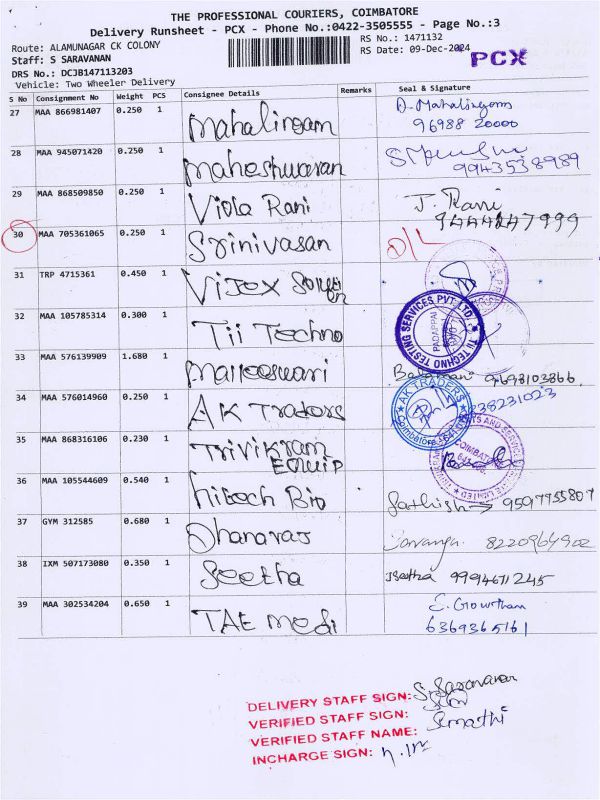 THE PROFESSIONAL COURIERS, COIMBATORE
Delivery Runsheet - PCX - Phone No.:0422-3505555 - Page No.:3
Route: ALAMUNAGAR CK COLONY
RS No.: 1471132
Staff: S SARAVANAN
RS Date: 09-Dec-2024
PCX
DRS No.: DCJB147113203
Vehicle: Two Wheeler Delivery
S No Consignment No Weight PCS Consignee Details Remarks Seal & Signature
27 MAA 866981407 0.250 1 Mahalingam D. Mahalingam
96988 20000
28 MAA 945071420 0.250 1 Maheshwaran
9943538989
29 MAA 868509850 0.250 1 Viola Rani J. Rani
30 MAA 705361065 0.250 1 Srinivasan D/L
31 TRP 4715361 0.450 1
32 MAA 105785314 0.300 1 Tii Techno
TII TECHNO TESTING SERVICES PVT. LTD.
33 MAA 576139909 1.680 1 9698103866
34 MAA 576014960 0.250 1 AK Traders
AK TRADERS
Coimbatore
35 MAA 868316106 0.230 1 Trivikram
Equip
36 MAA 105544609 0.540 1 hitech Bio Sathish 9597755807
37 GYM 312585 0.680 1 Dhanaraj 8220964902
38 IXM 507173080 0.350 1 Seetha Seetha 9994671245
39 MAA 302534204 0.650 1 TAE medi E. Gowtham
6369365161
DELIVERY STAFF SIGN: S. Saravanan
VERIFIED STAFF SIGN:
VERIFIED STAFF NAME: Sumathi
INCHARGE SIGN: